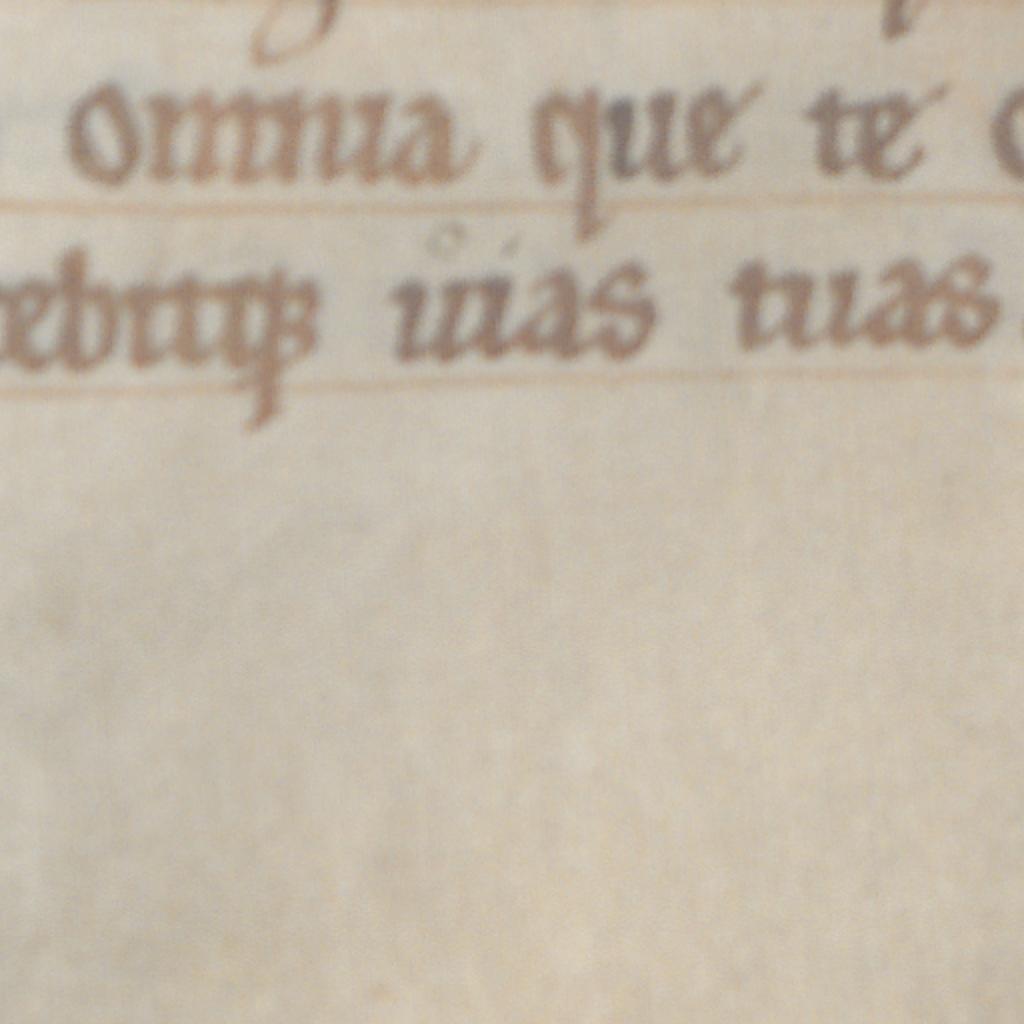 omnia que te
ebitq; uias tuas